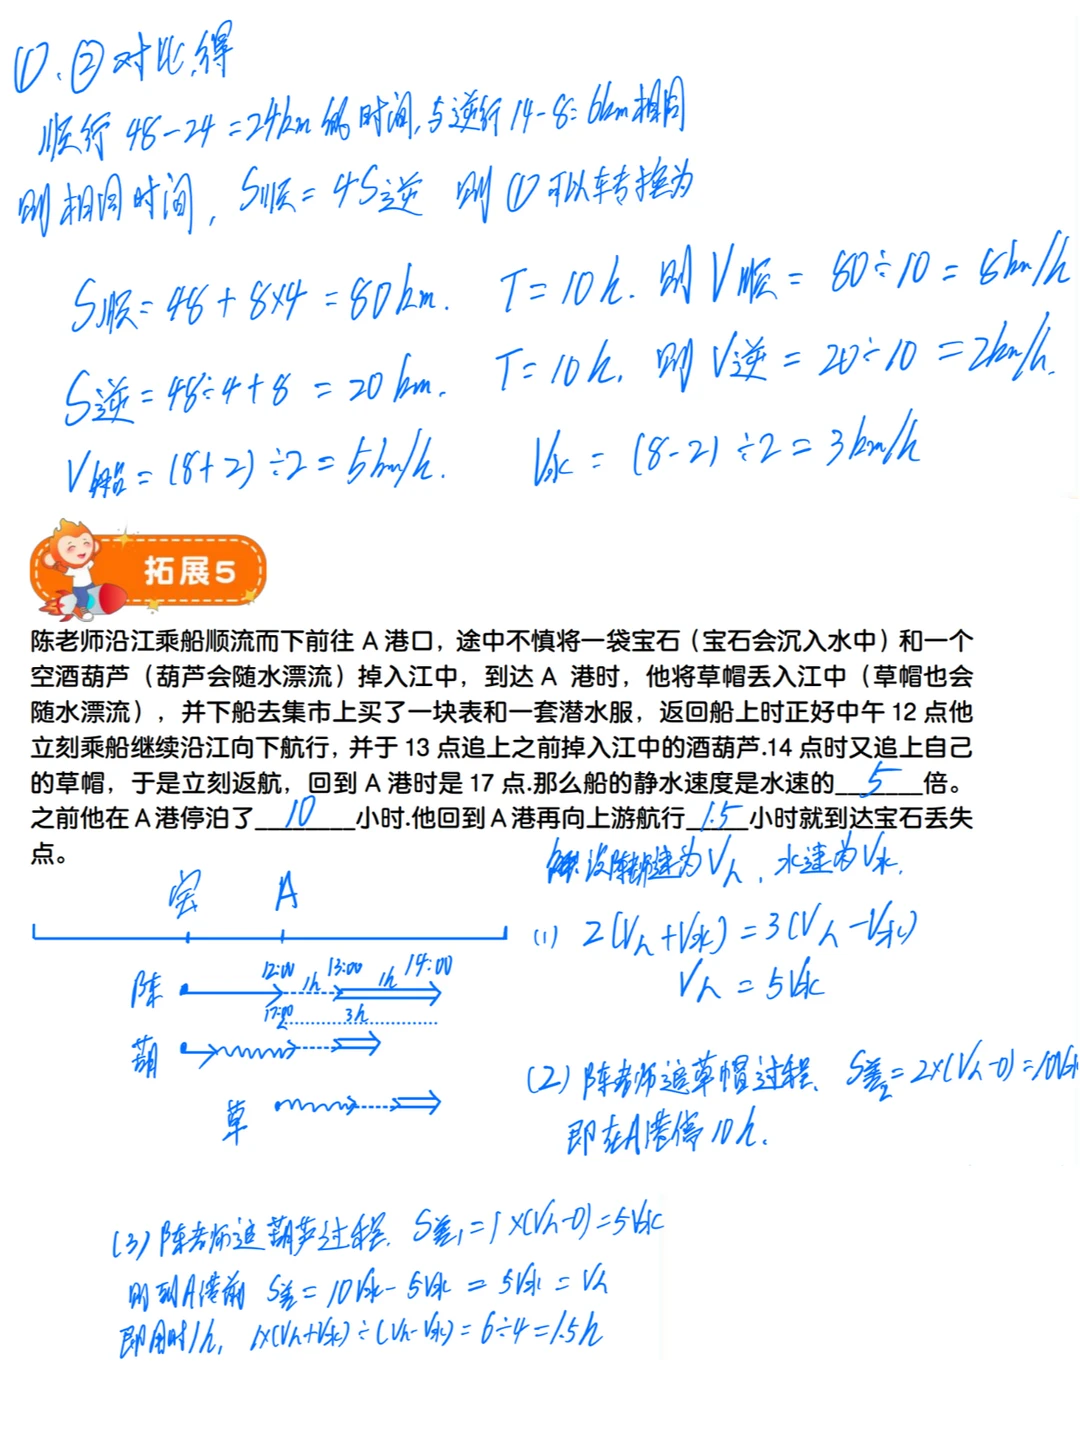 ①、②对比,得
顺行 48-24=24km 的时间,与逆行 14-8=6km相同
则相同时间, S顺=4S逆 则①可以转换为
S顺=48+8×4=80km. T=10h. 则V顺=80÷10=8km/h
S逆=48÷4+8=20km. T=10h. 则V逆=20÷10=2km/h.
V船=(8+2)÷2=5km/h. V水=(8-2)÷2=3km/h
拓展5
陈老师沿江乘船顺流而下前往 A 港口，途中不慎将一袋宝石（宝石会沉入水中）和一个
空酒葫芦（葫芦会随水漂流）掉入江中，到达 A 港时，他将草帽丢入江中（草帽也会
随水漂流），并下船去集市上买了一块表和一套潜水服，返回船上时正好中午 12 点他
立刻乘船继续沿江向下航行，并于 13 点追上之前掉入江中的酒葫芦.14 点时又追上自己
的草帽，于是立刻返航，回到 A 港时是 17 点.那么船的静水速度是水速的 5 倍。
之前他在 A 港停泊了 10 小时.他回到 A 港再向上游航行 1.5 小时就到达宝石丢失
点。
解:设陈船速为V人,水速为V水.
宝 A
(1) 2(V人+V水)=3(V人-V水)
V人=5V水
陈 12:00 1h 13:00 1h 14:00
17:00 3h
葫
草
(2)陈老师追草帽过程. S差₂=2×(V人-0)=10V水
即在A港停10h.
(3)陈老师追葫芦过程. S差₁=1×(V人-0)=5V水
则到A港前 S差=10V水-5V水=5V水=V人
即用时1h, 1×(V人+V水)÷(V人-V水)=6÷4=1.5h